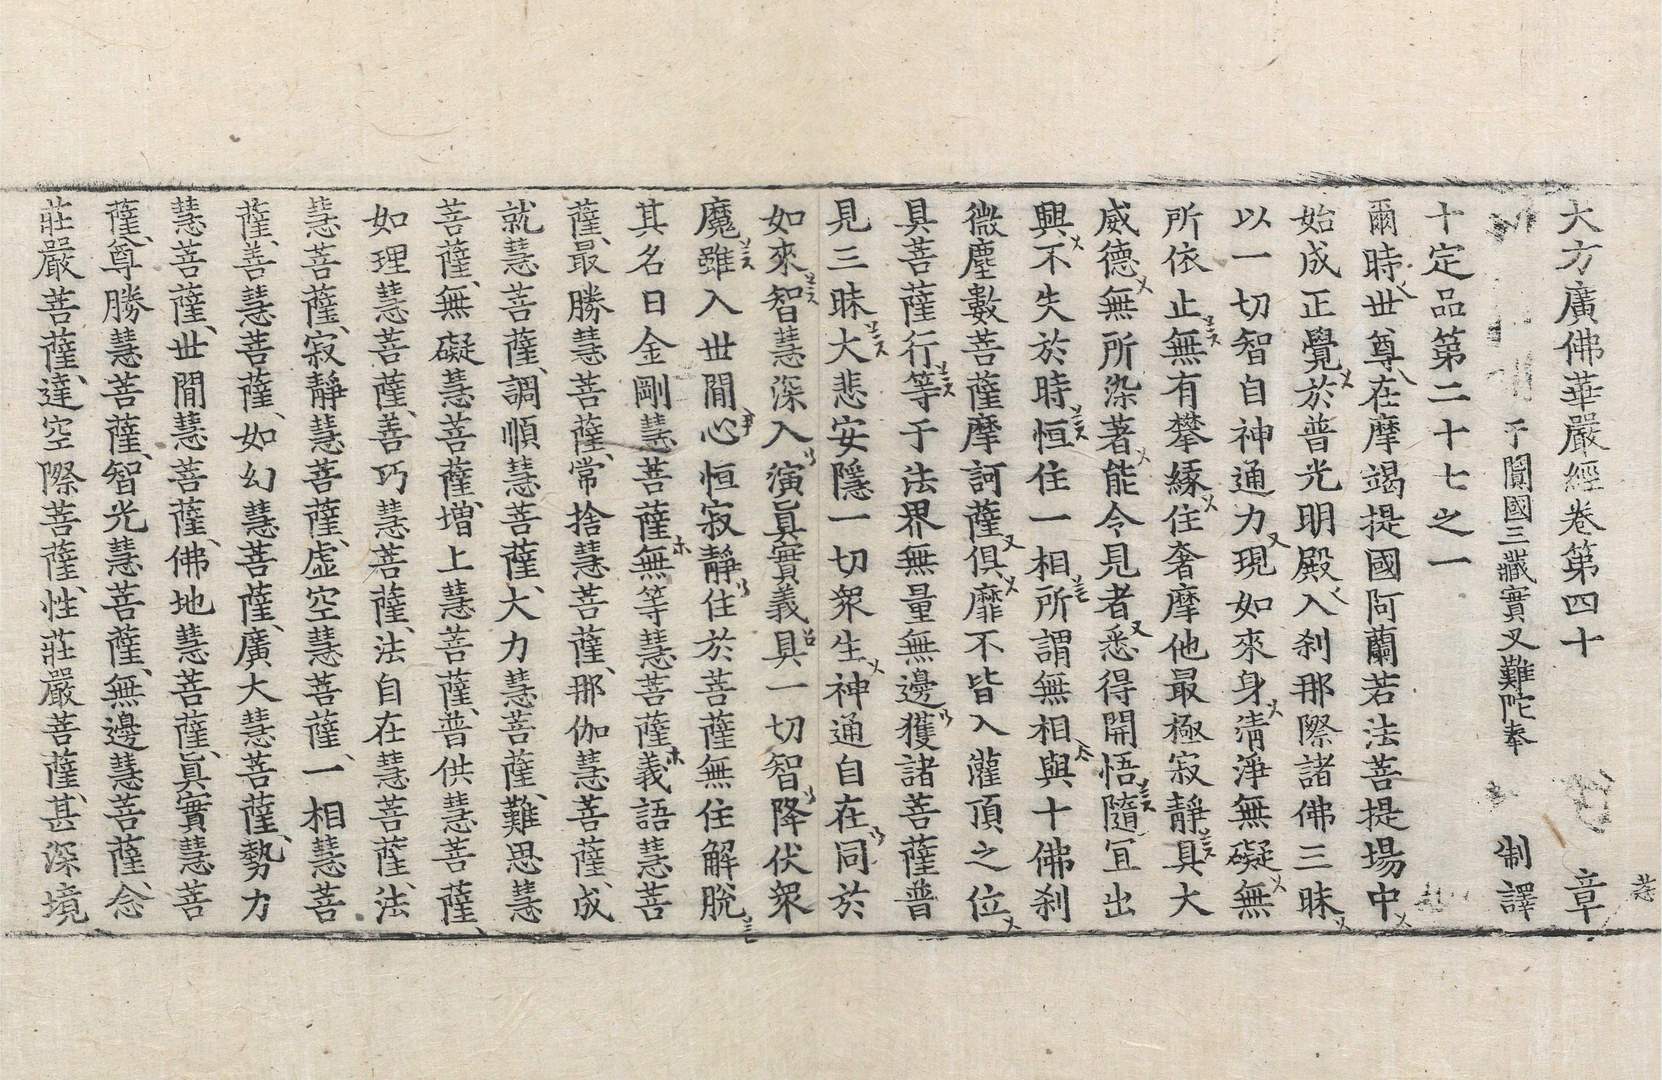 大方廣佛華嚴經卷第四十 章
于闐國三藏實叉難陀奉 制譯
十定品第二十七之一
爾時世尊在摩竭提國阿蘭若法菩提場中
始成正覺於普光明殿入刹那際諸佛三昧
以一切智自神通力現如來身淸淨無礙無
所依止無有攀緣住奢摩他最極寂靜具大
威德無所染著能令見者悉得開悟隨宜出
興不失於時恒住一相所謂無相與十佛刹
微塵數菩薩摩訶薩俱靡不皆入灌頂之位
具菩薩行等于法界無量無邊獲諸菩薩普
見三昧大悲安隱一切衆生神通自在同於
如來智慧深入演眞實義具一切智降伏衆
魔雖入世間心恒寂靜住於菩薩無住解脫
其名曰金剛慧菩薩無等慧菩薩義語慧菩
薩、最勝慧菩薩、常捨慧菩薩、那伽慧菩薩、成
就慧菩薩、調順慧菩薩、大力慧菩薩、難思慧
菩薩、無礙慧菩薩、增上慧菩薩、普供慧菩薩、
如理慧菩薩、善巧慧菩薩、法自在慧菩薩、法
慧菩薩、寂靜慧菩薩、虛空慧菩薩、一相慧菩
薩、善慧菩薩、如幻慧菩薩、廣大慧菩薩、勢力
慧菩薩、世間慧菩薩、佛地慧菩薩、眞實慧菩
薩、尊勝慧菩薩、智光慧菩薩、無邊慧菩薩、念
莊嚴菩薩、達空際菩薩、性莊嚴菩薩、甚深境